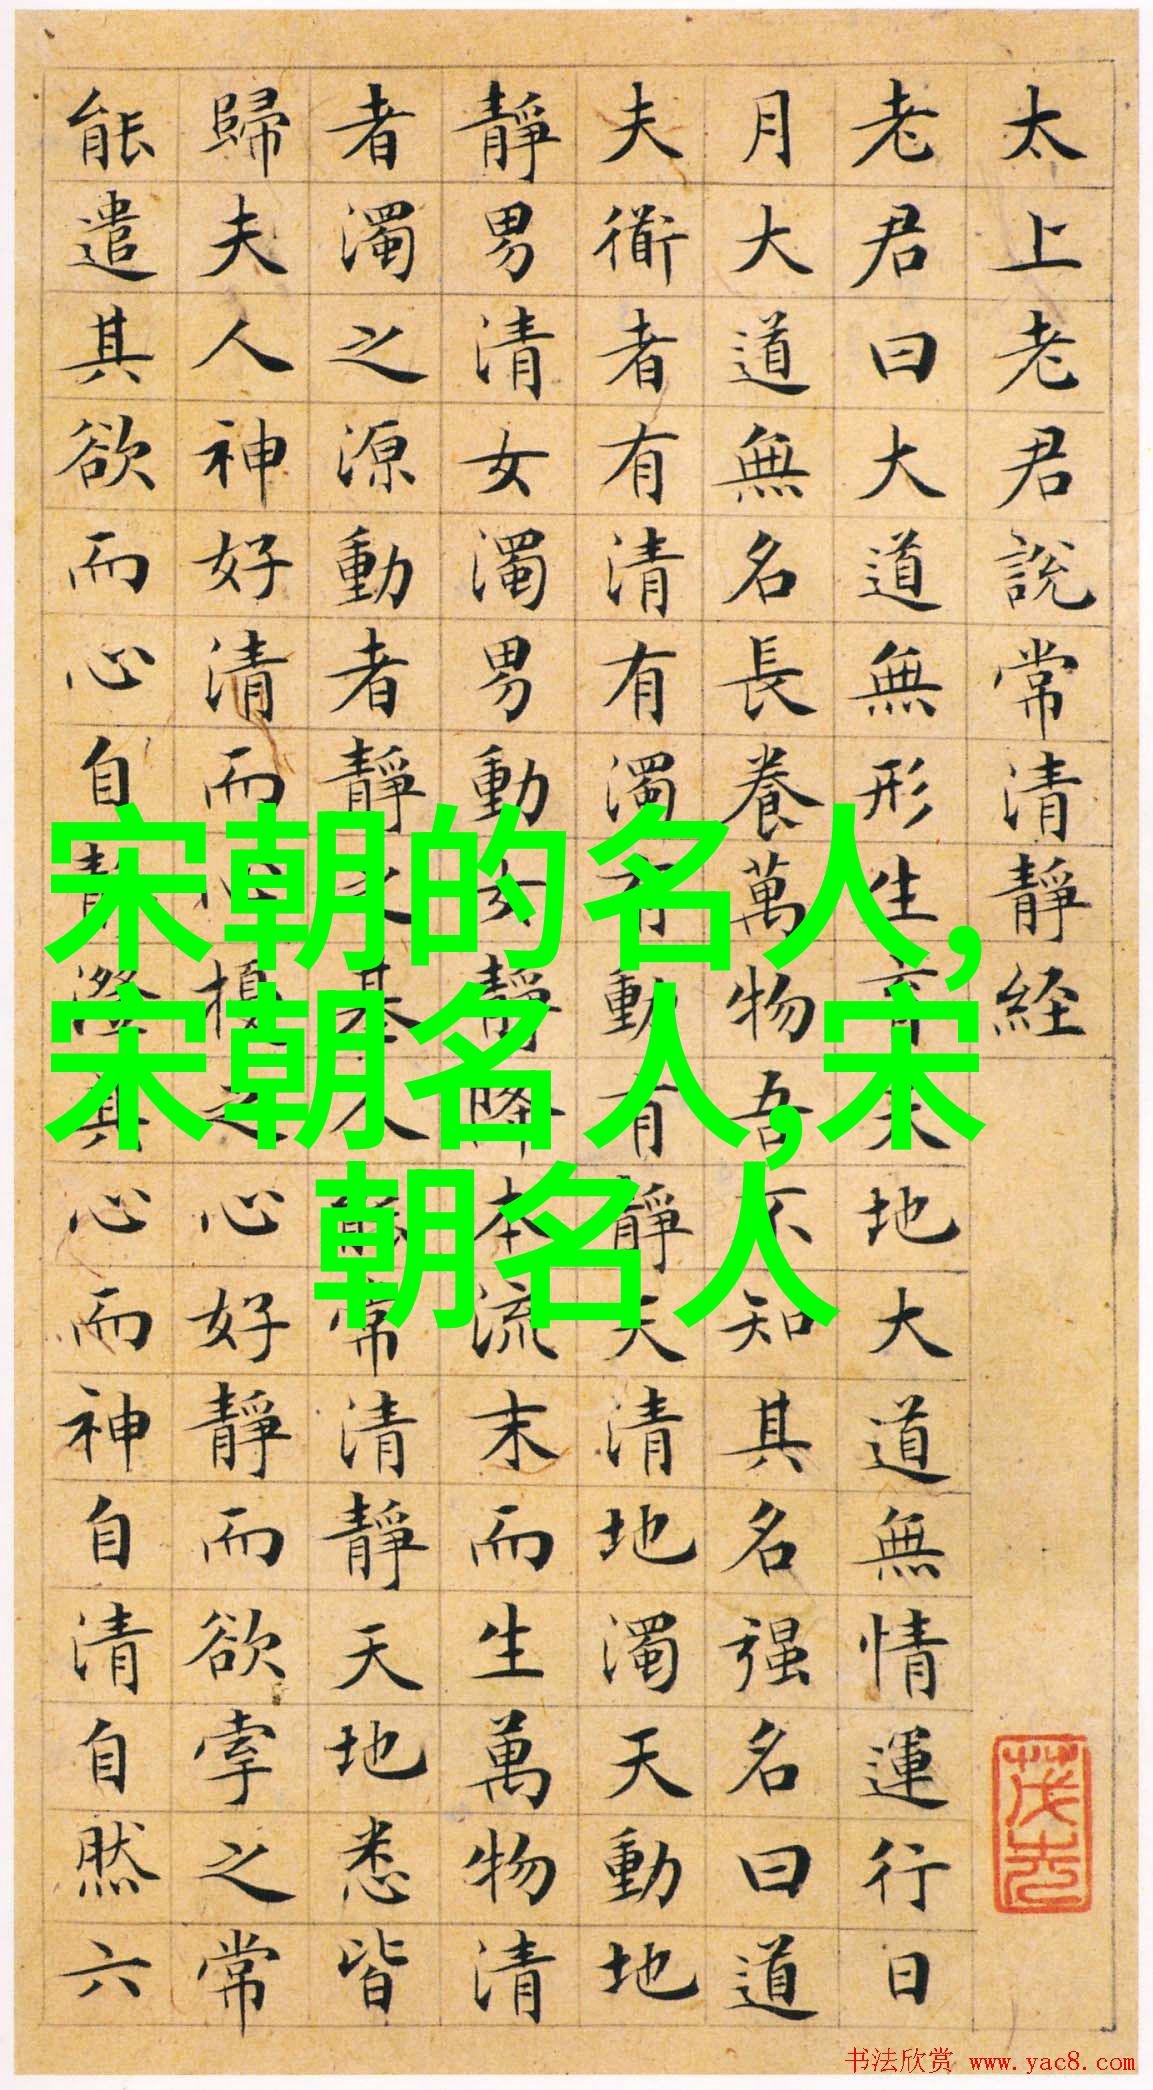 太上老君說常清靜経
老君曰大道無形生育天地大道無情運行日
月大道無名長養萬物吾不知其名强名曰道
夫衜者有清有濁有動有靜天清地濁天動地
靜男清女濁男動女靜降本流末而生萬物清
者濁之源動者靜之基人能常清靜天地悉皆
歸夫人神好清而心擾之心好靜而欲牽之常
能遣其欲而心自靜澄其心而神自清自然六
宋朝的名人,
宋朝名人,宋
朝名人
书法欣赏 www.yac8.com